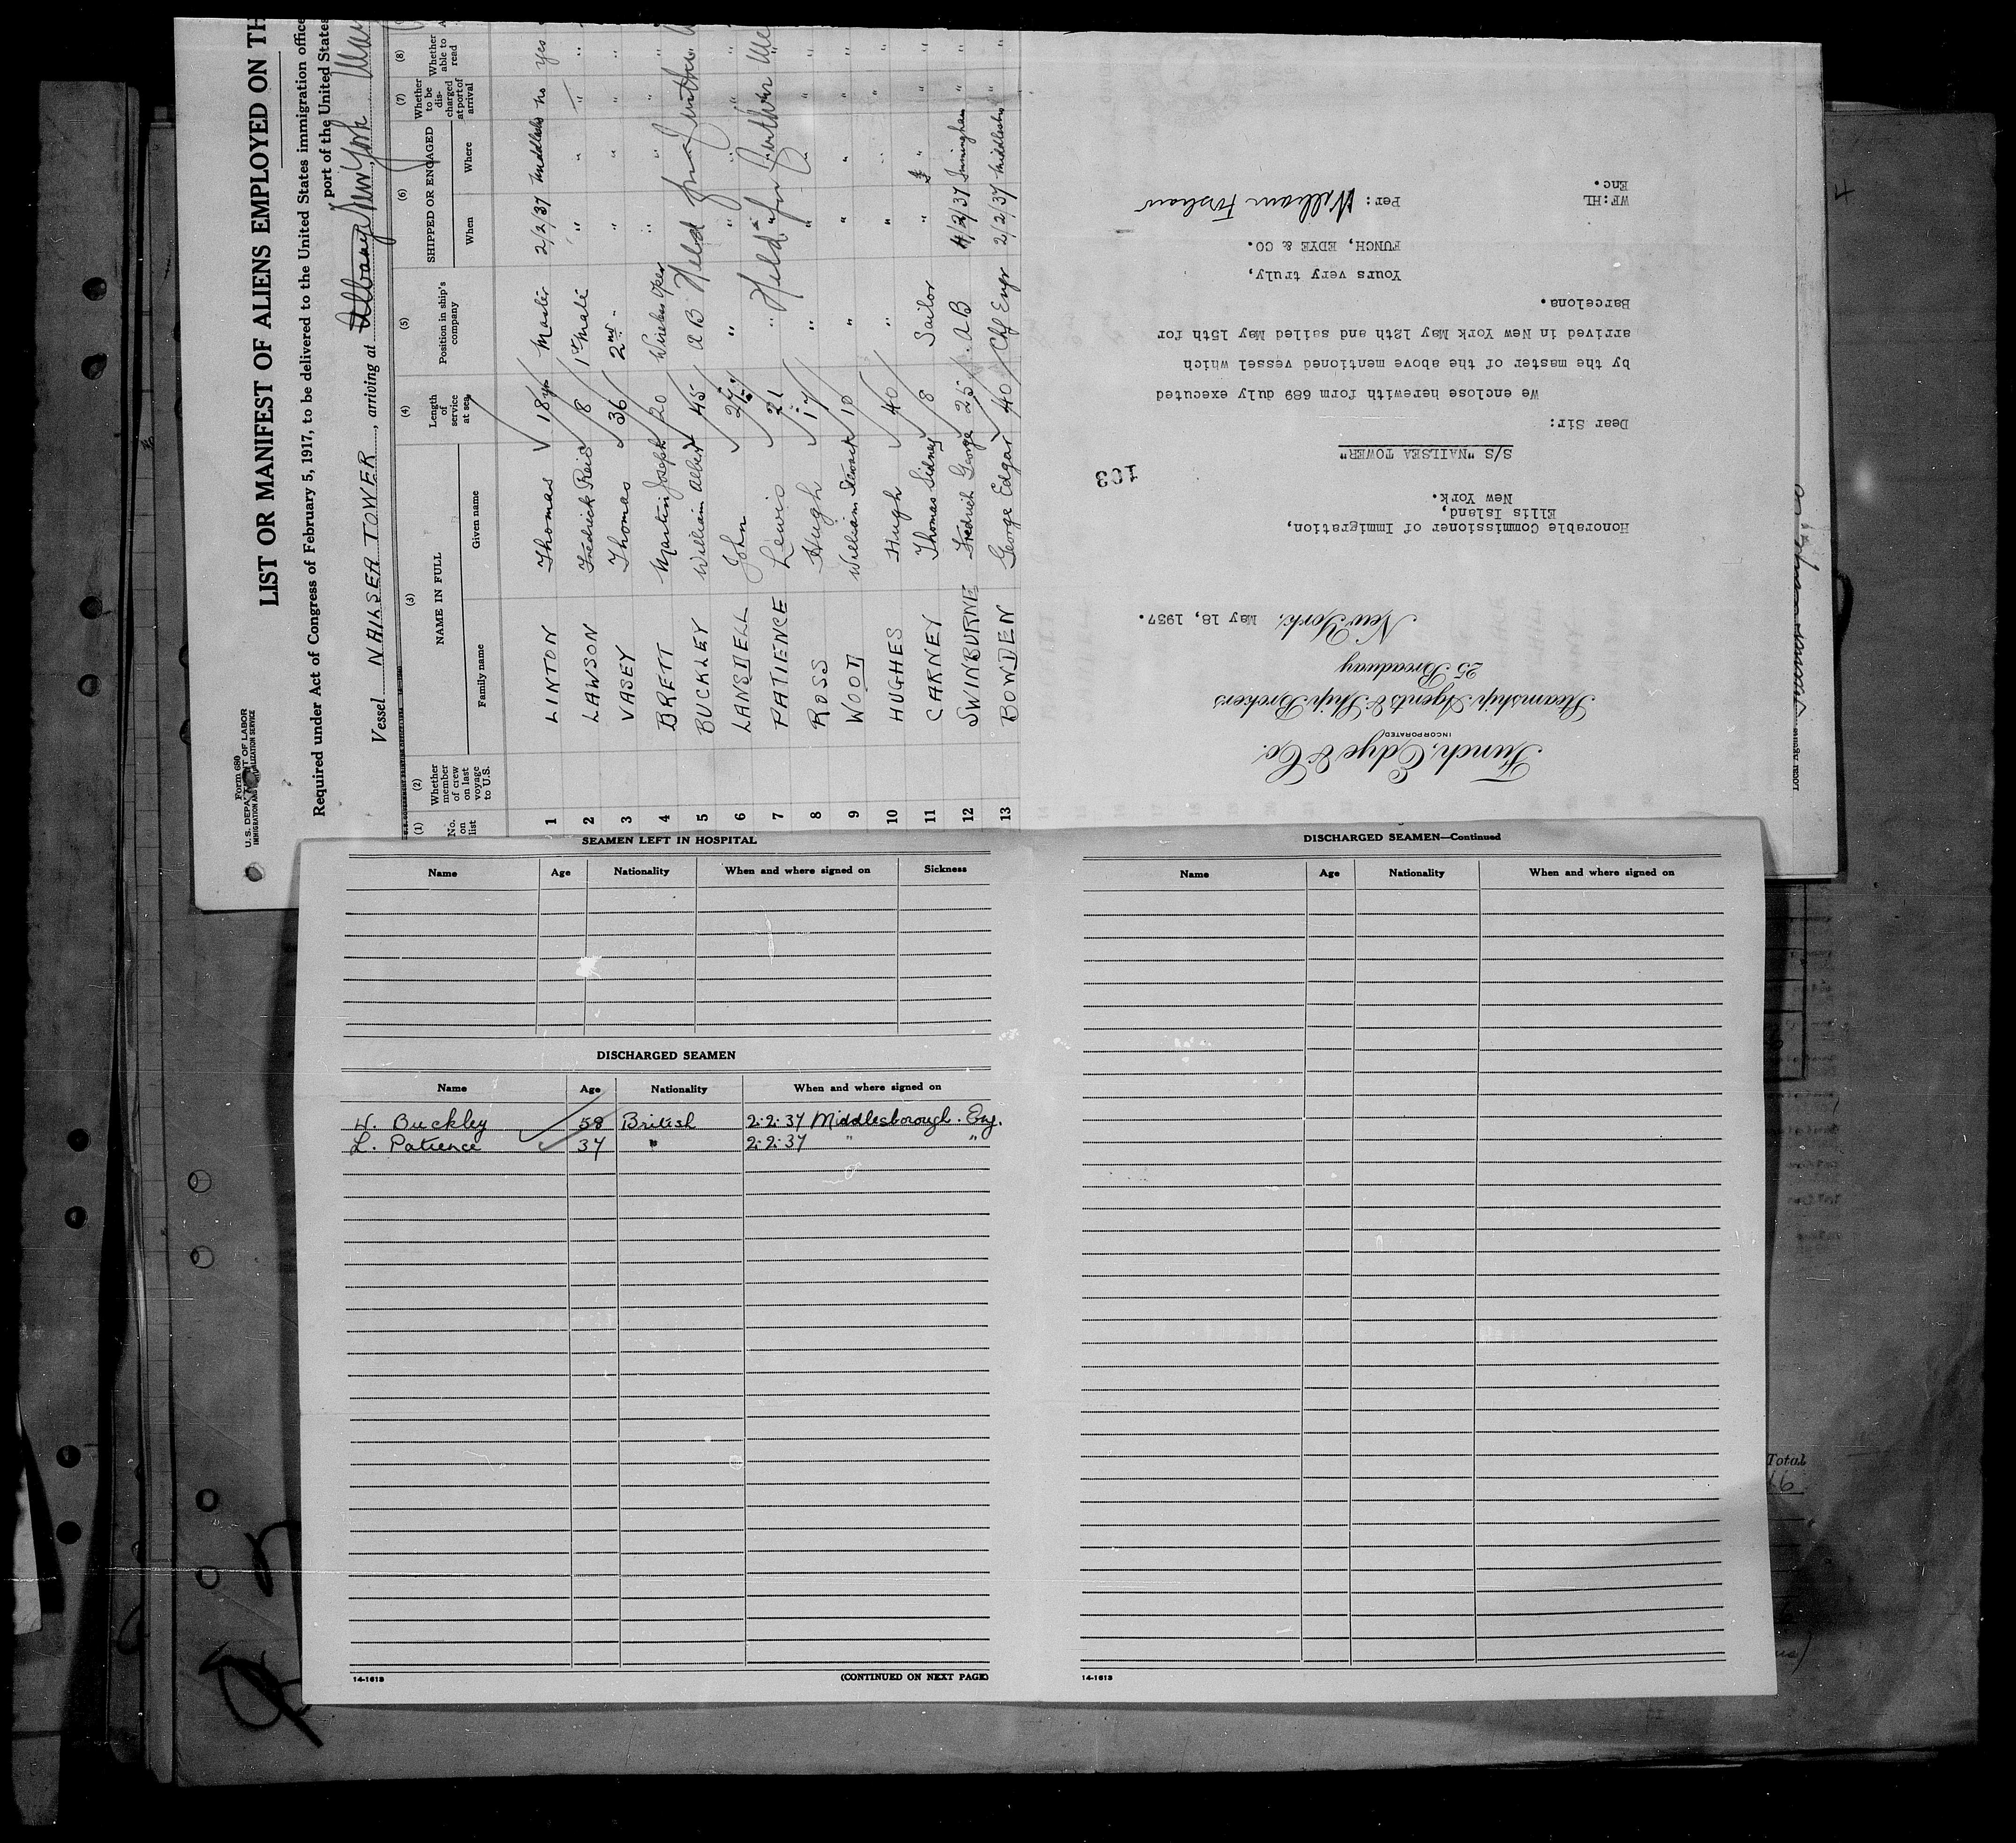 Form 680
U.S. DEPARTMENT OF LABOR
IMMIGRATION AND NATURALIZATION SERVICE
LIST OR MANIFEST OF ALIENS EMPLOYED ON TH
Required under Act of Congress of February 5, 1917, to be delivered to the United States immigration office
port of the United States
Vessel NAILSEA TOWER, arriving at Albany New York
(1) (2) (3) (4) (5) (6) (7) (8)
No. on list
Whether member of crew on last voyage to U.S.
NAME IN FULL
Family name Given name
Length of service at sea
Position in ship's company
SHIPPED OR ENGAGED
When Where
Whether to be discharged at port of arrival
Whether able to read
1 LINTON Thomas 18 yrs Master 2/2/37 Middlesbro No yes
2 LAWSON Fredrick Reis 8 1st Mate " " " "
3 VASEY Thomas 36 2nd " " " " "
4 BRETT Martin Joseph 20 Wireless Oper " " " "
5 BUCKLEY William Albert 45 A B Held
6 LANSDELL John 27 " " " " "
7 PATIENCE Lewis 21 " Held for further
8 ROSS Hugh 17 " " " "
9 WOOD William Stewart 10 " " " " "
10 HUGHES Hugh 40 " " " " "
11 CARNEY Thomas Sidney 8 Sailor " " " "
12 SWINBURNE Fredrich George 25 A B 4/2/37 Immingham " "
13 BOWDEN George Edgar 40 Chf Engr 2/2/37 Middlesbro " "
Funch, Edye & Co.
INCORPORATED
Steamship Agents & Ship Brokers
25 Broadway
New York, May 18, 1937.
Honorable Commissioner of Immigration,
Ellis Island,
New York.
103
S/S "NAILSEA TOWER"
Dear Sir:
We enclose herewith form 689 duly executed
by the master of the above mentioned vessel which
arrived in New York May 12th and sailed May 15th for
Barcelona.
Yours very truly,
FUNCH, EDYE & CO.
Per: William Forshaw
WF:HL
Enc.
Local Agents
SEAMEN LEFT IN HOSPITAL
Name Age Nationality When and where signed on Sickness
DISCHARGED SEAMEN
Name Age Nationality When and where signed on
W. Buckley 58 British 2.2.37 Middlesborough. Eng.
L. Patience 37 " 2.2.37 " "
14-1613 (CONTINUED ON NEXT PAGE)
DISCHARGED SEAMEN—Continued
Name Age Nationality When and where signed on
14-1613
Total
16